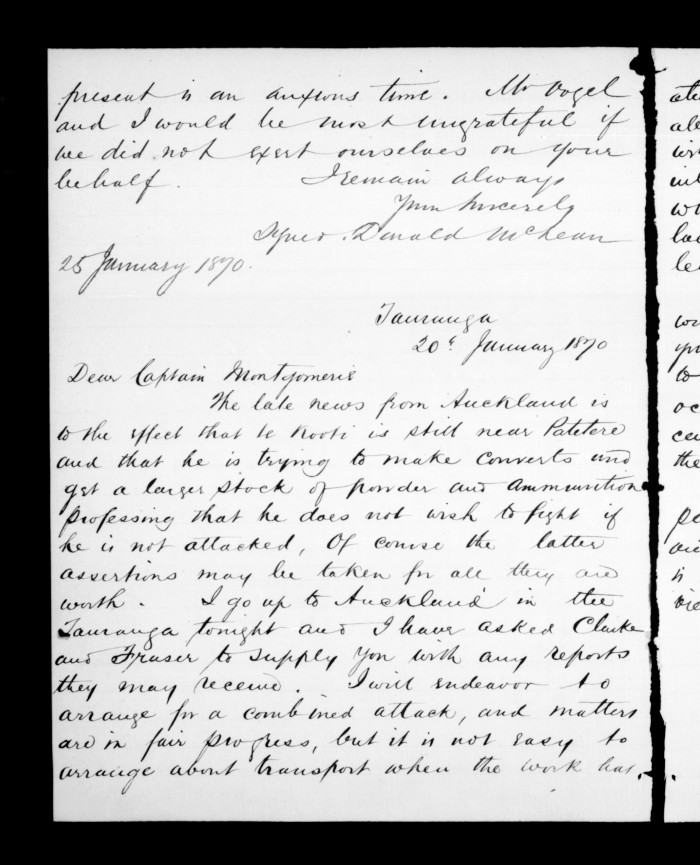 present is an anxious time. Mr Vogel
and I would be most ungrateful if
we did not exert ourselves on your
behalf. I remain always
Your Sincerely
Signed. Donald McLean
25 January 1870.
Tauranga
20th January 1870
Dear Captain Montgomerie
The late news from Auckland is
to the effect that te Kooti is still near Patetere
and that he is trying to make converts and
get a larger stock of powder and ammunition
professing that he does not wish to fight if
he is not attacked, Of course the latter
assertions may be taken for all they are
worth. I go up to Auckland in the
Tauranga tonight and I have asked Clarke
and Fraser to supply you with any reports
they may receive. I will endeavor to
arrange for a combined attack, and matters
are in fair progress, but it is not easy to
arrange about transport when the work has